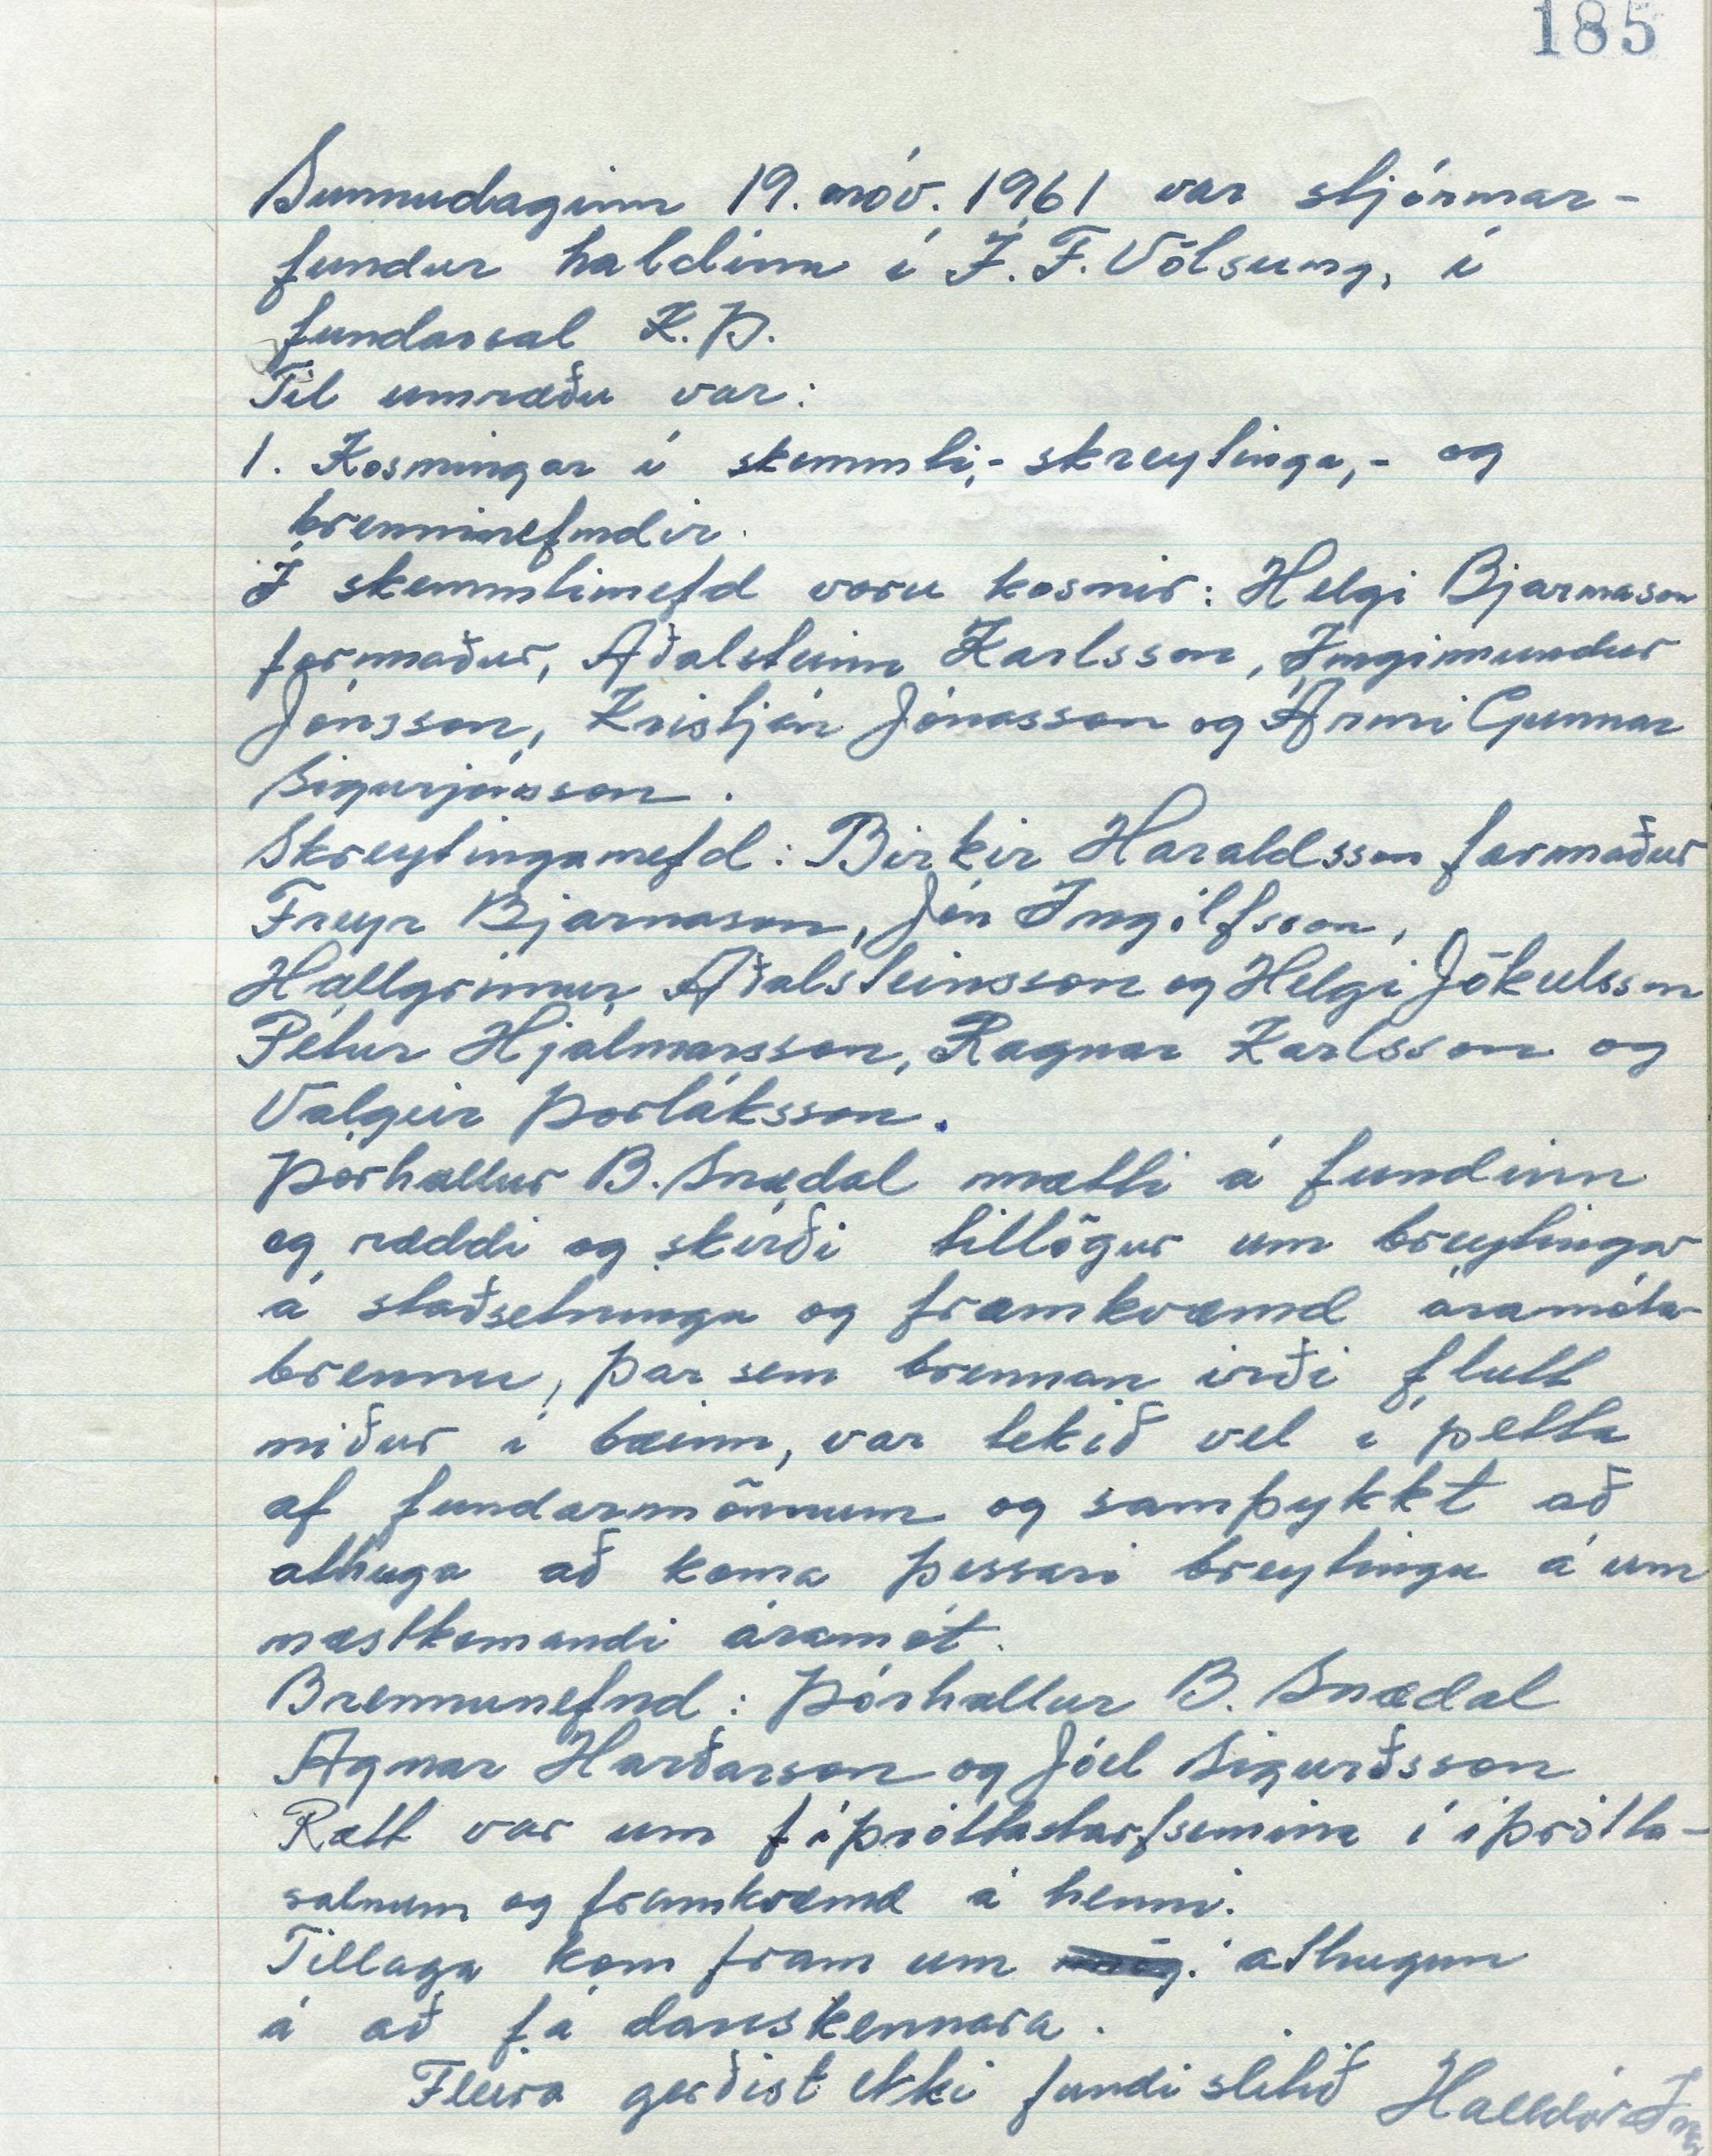 185
Sunnudaginn 19. nóv. 1961 var stjórnar-
fundur haldinn í Í. F. Völsung, í
fundarsal K. Þ.
Til umræðu var:
1. Kosningar í skemmti,- skreytinga,- og
brenninefndir.
Í skemmtinefd voru kosnir: Helgi Bjarnason
formaður, Aðalsteinn Karlsson, Ingimundur
Jónsson, Kristján Jónasson og Árni Gunnar
Sigurjónsson.
Skreytinganefd: Birkir Haraldsson formaður
Freyr Bjarnason, Jón Ingólfsson,
Hallgrímur Aðalsteinsson og Helgi Jökulsson
Pétur Hjálmarsson, Ragnar Karlsson og
Valgeir Þorláksson.
Þórhallur B. Snædal mætti á fundinn
og ræddi og skírði tillögur um breytingar
á staðsetningu og framkvæmd áramóta-
brennu, þar sem brennan irði flutt
niður í bæinn, var tekið vel í þetta
af fundarmönnum og samþykkt að
athuga að koma þessari breytingu á um
næstkomandi áramót.
Brennunefnd: Þórhallur B. Snædal
Agnar Harðarson og Jóel Sigurðsson
Rætt var um íþróttastarfsemina í íþrótta-
salnum og framkvæmd á henni.
Tillaga kom fram um athugun
á að fá danskennara.
Fleira gerðist ekki fundi slitið Halldór Ing